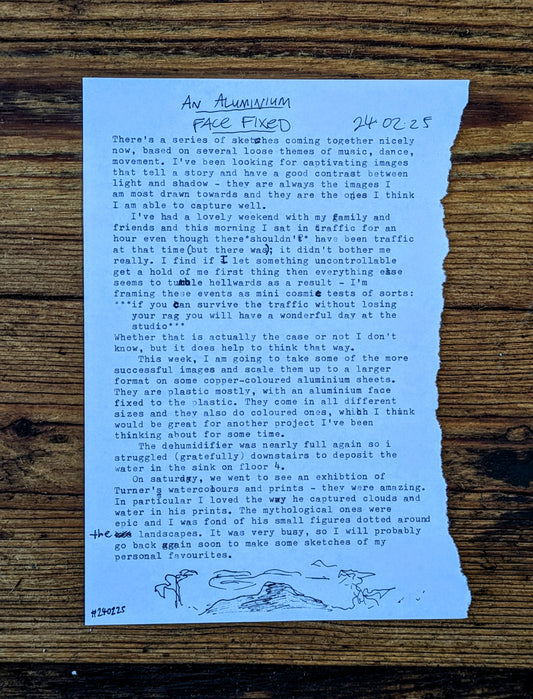 An Aluminium
Face Fixed 24.02.25
There's a series of sketches coming together nicely
now, based on several loose themes of music, dance,
movement. I've been looking for captivating images
that tell a story and have a good contrast between
light and shadow - they are always the images I
am most drawn towards and they are the ones I think
I am able to capture well.
I've had a lovely weekend with my family and
friends and this morning I sat in traffic for an
hour even though there *shouldn't* have been traffic
at that time (but there was); it didn't bother me
really. I find if I let something uncontrollable
get a hold of me first thing then everything else
seems to tumble hellwards as a result - I'm
framing these events as mini cosmic tests of sorts:
***if you can survive the traffic without losing
your rag you will have a wonderful day at the
studio***
Whether that is actually the case or not I don't
know, but it does help to think that way.
This week, I am going to take some of the more
successful images and scale them up to a larger
format on some copper-coloured aluminium sheets.
They are plastic mostly, with an aluminium face
fixed to the plastic. They come in all different
sizes and they also do coloured ones, which I think
would be great for another project I've been
thinking about for some time.
The dehumidifier was nearly full again so i
struggled (gratefully) downstairs to deposit the
water in the sink on floor 4.
On saturday, we went to see an exhibtion of
Turner's watercolours and prints - they were amazing.
In particular I loved the way he captured clouds and
water in his prints. The mythological ones were
epic and I was fond of his small figures dotted around
the landscapes. It was very busy, so I will probably
go back again soon to make some sketches of my
personal favourites.
#240225